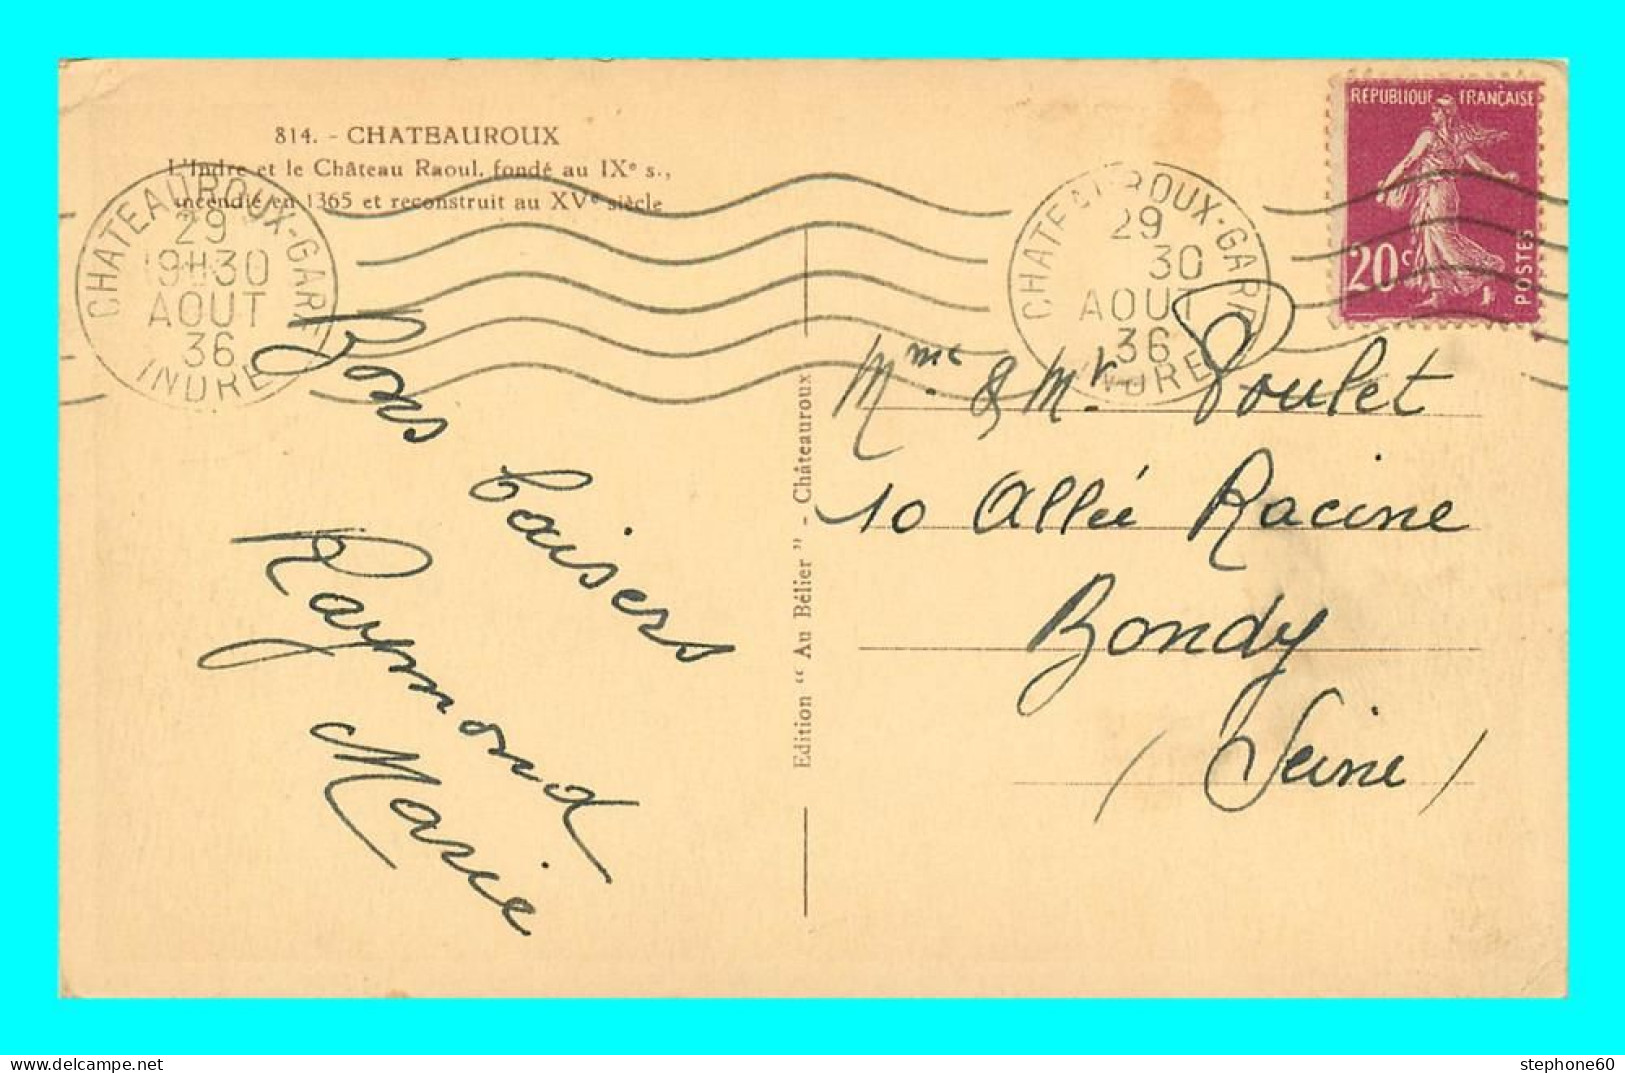 814. - CHATEAUROUX
L'Indre et le Château Raoul, fondé au IXe s.,
incendié en 1365 et reconstruit au XVe siècle
CHATEAUROUX-GARE
29
19H30
AOUT
36
INDRE
Bons baisers
Raymond
Marie
Edition “ Au Bélier ” - Châteauroux
CHATEAUROUX-GARE
29
30
AOUT
36
INDRE
REPUBLIQUE FRANÇAISE
20c
POSTES
Mme & Mr Poulet
10 Allée Racine
Bondy
(Seine)
stephone60